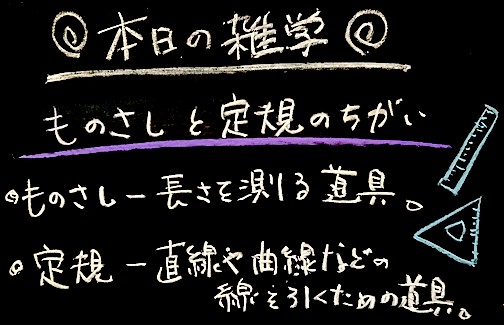 ◎本日の雑学◎
ものさしと定規のちがい
◎ものさしー長さを測る道具。
◎定規ー直線や曲線などの
線を引くための道具。